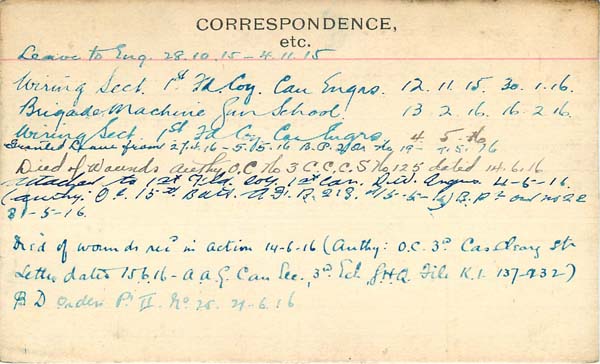 CORRESPONDENCE,
etc.
Leave to Eng. 28.10.15 - 4.11.15
Wiring Sect. 1st Fd. Coy. Can Engrs. 12.11.15. 30.1.16.
Brigade Machine Gun School 13 2.16. 16-2.16.
Wiring Sect. 1st Fd Coy Can Engrs 4 5
Granted Leave from 27.4.16 - 5.5.16 B.P. No 19 - 9.5.16
Died of Wounds Authy O.C. No 3 C.C.C.S No 125 dated 14.6.16
Attached to 1st Field Coy. 1st Can. Div. Engrs. 4-5-16.
(Authy: O.C. 15th Batt. 213. 15-5-16) B. Pt 2 ord no 22
31-5-16.
Died of wounds rec'd in action 14-6-16 (Authy: O.C. 3rd Cas Clearg Stn
Letter dated 15616 - A A G. Can Sec. 3rd Ech G.H.Q. File K.1. 137-932)
B D Orders Pt II. No 25. 21-6.16